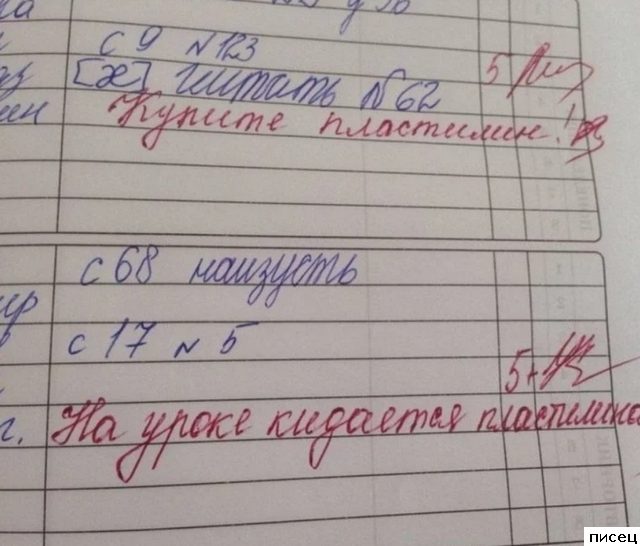 с 9 N 123
[ж] читать №62 5
Купите пластилин!
с 68 наизусть
с 17 N 5
5+
г. На уроке кидается пластилино
писец